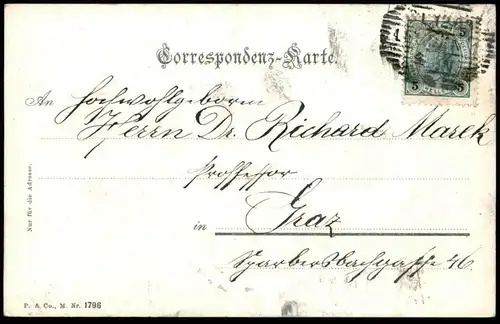 Correspondenz-Karte.
5 5
An Hochwohlgeboren
Herrn Dr. Richard Marek
Professor
in Graz
Sparbersbachgasse 46
Nur für die Adresse.
P. & Co., M. Nr. 1796